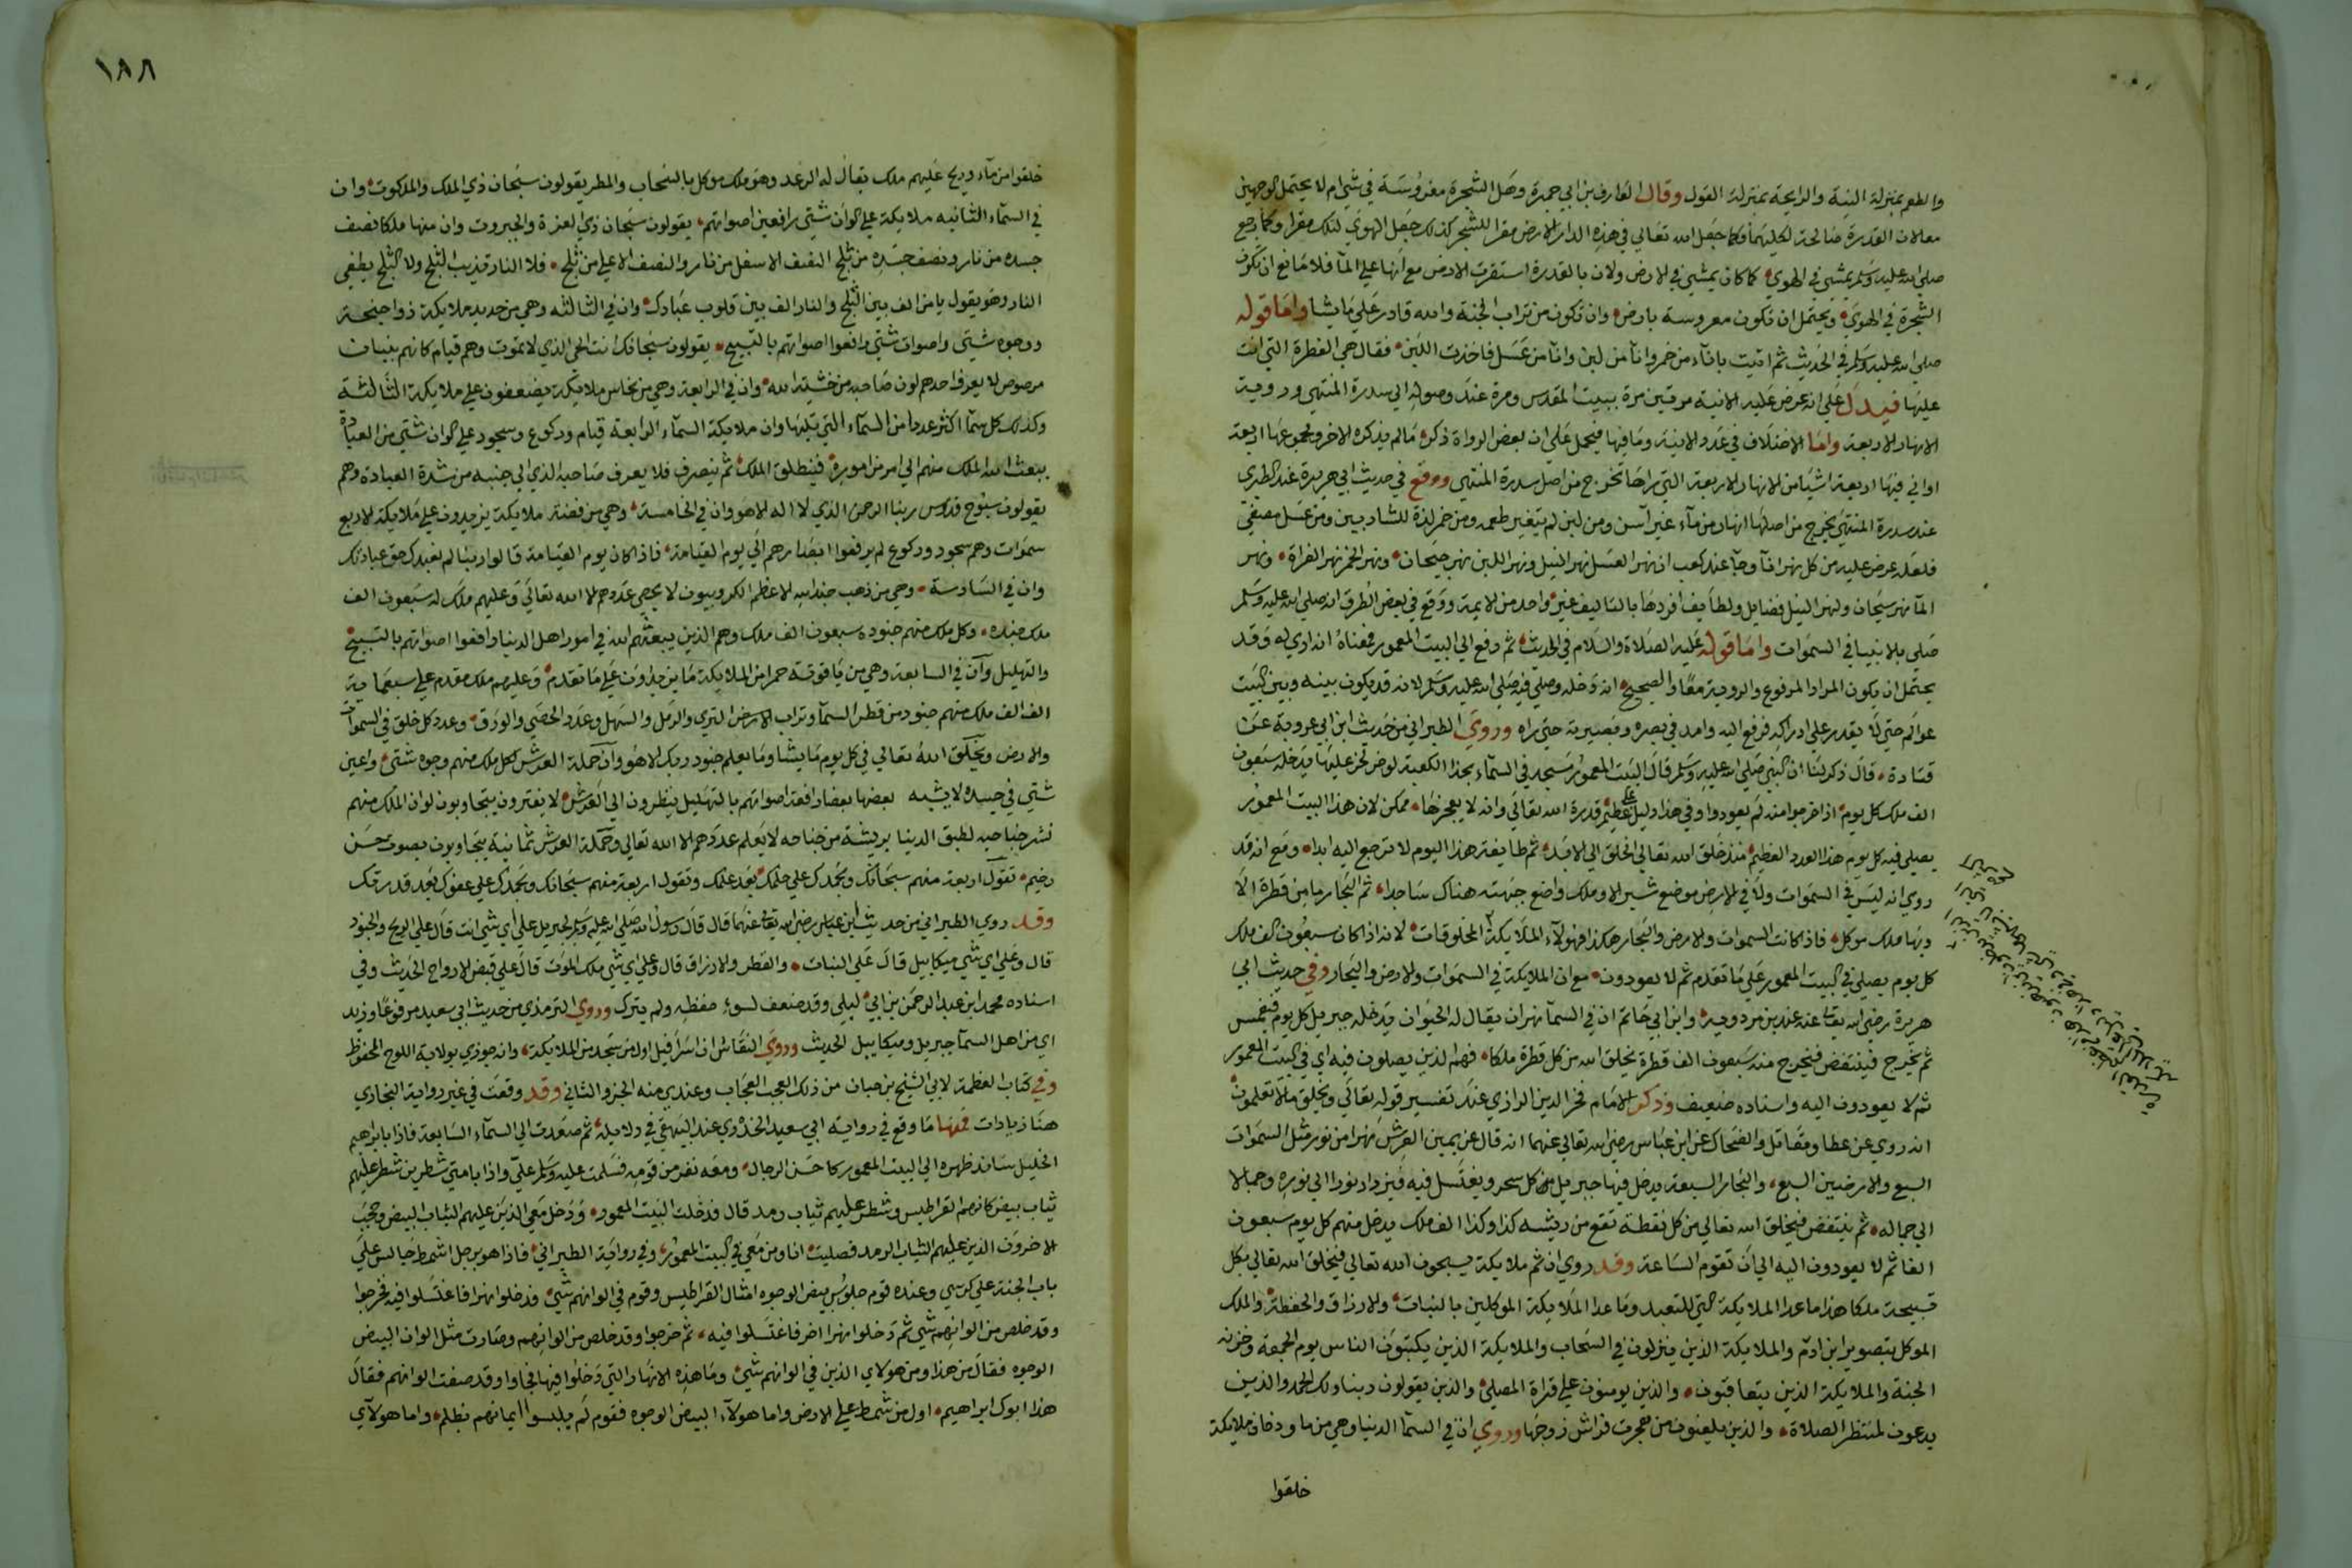 والطعم بمنزلة النية والرايحة بمنزلة القول وقال العارف بن ابي جمرة وهل الشجرة مغروسة في شي ام لا يحتمل الوجهين
معا لان القدرة صالحة لكليهما فكما جعل الله تعالي في هذه الدار الارض مقرا للشجر كذلك جعل الهوي لتلك مقرا وكما رجع
صلي الله عليه وسلم يمشي في الهوي كما كان يمشي في الارض ولان بالقدرة استقرت الارض مع انها علي الما فلا مانع ان تكون
الشجرة في الهوي ويحتمل ان تكون مغروسة بارض وان تكون من تراب الجنة والله قادر علي ما يشا واما قوله
صلي الله عليه وسلم في الحديث ثم اتيت باناء من خمر وانا من لبن وانا من عسل فاخذت اللبن فقال هي الفطرة التي انت
عليها فيدل علي انه عرض عليه الانية مرتين مرة ببيت المقدس ومرة عند وصوله الي سدرة المنتهي ورويه
الانهار الاربعة واما الاختلاف في عدد الانية وما فيها فيحمل علي ان بعض الرواة ذكر ما لم يذكره الاخر ومجموعها اربعة
اواني فيها اربعة اشيا من الانهار الاربعة التي راها تخرج من اصل سدرة المنتهي ووقع في حديث ابي هريرة عند الطبري
عند سدرة المنتهي يخرج من اصلها انهار من ماء غير آسن ومن لبن لم يتغير طعمه ومن خمر لذة للشاربين ومن عسل مصفي
فلعله عرض عليه من كل نهر انا وجا عند كعب ان نهر العسل نهر النيل ونهر اللبن نهر جيحان ونهر الخمر نهر الفراة ونهر
الما نهر سيحان ولنهر النيل فضايل ولطايف افردها بالتاليف غير واحد من الايمة ووقع في بعض الطرق انه صلي الله عليه وسلم
صلي بالانبيا في السموات واما قوله عليه الصلاة والسلام في الحديث ثم رفع الي البيت المعمور فمعناه انه اري له وقد
يحتمل ان يكون المراد المرفوع والروية معا والصحيح انه دخله وصلي فيه صلي الله عليه وسلم لانه قد يكون بينه وبين البيت
عوالم حتي لا يقدر علي ادراكه فرفع اليه وامد في بصره وبصيرته حتي راه وروي الطبراني من حديث ابن ابي عروبة عن
قتادة قال ذكر لنا ان النبي صلي الله عليه وسلم قال البيت المعمور مسجد في السماء بحذا الكعبة لو خر لخر عليها يدخله سبعون
الف ملك كل يوم اذا خرجوا منه لم يعودوا وفي هذا دليل علي عظيم قدرة الله تعالي وانه لا يعجزها ممكن لان هذا البيت المعمور
يصلي فيه كل يوم هذا العدد العظيم منذ خلق الله تعالي الخلق الي الابد ثم طايفة هذا اليوم لا ترجع اليه ابدا ومع انه قد
روي انه ليس في السموات ولا في الارض موضع شبر الا وملك واضع جبهته هناك ساجدا ثم البحار ما من قطرة الا
وبها ملك موكل فاذا كانت السموات والارض والبحار هكذا فهولاء الملايكة المخلوقات لانه اذا كان سبعون الف ملك
كل يوم يصلي في البيت المعمور علي ما تقدم ثم لا يعودون مع ان الملايكة في السموات والارض والبحار وفي حديث ابي
هريرة رضي الله تعالي عنه عند بن مردويه وابن ابي حاتم ان في السما نهر ان يقال له الحيوان يدخله جبريل كل يوم فيغمس
ثم يخرج فينتفض فيخرج منه سبعون الف قطرة يخلق الله من كل قطرة ملكا فهم الذين يصلون فيه اي في البيت المعمور
ثم لا يعودون اليه واسناده ضعيف وذكر الامام فخر الدين الرازي عند تفسير قوله تعالي ويخلق ما لا تعلمون
انه روي عن عطا ومقاتل والضحاك عن ابن عباس رضي الله تعالي عنهما انه قال عن يمين العرش نهرا من نور مثل السموات
السبع والارضين السبع والبحار السبعة يدخل فيها جبريل كل سحر ويغتسل فيه فيزداد نورا الي نوره وجمالا
الي جماله ثم ينتفض فيخلق الله تعالي من كل نقطة تقع من ريشه كذا وكذا الف ملك يدخل منهم كل يوم سبعون
الفا ثم لا يعودون اليه الي ان تقوم الساعة وقد روي ان ثم ملايكة يسبحون الله تعالي فيخلق الله تعالي بكل
تسبيحة ملكا هذا ما عدا الملايكة التي للتعبد وما عدا الملايكة الموكلين بالنبات والارزاق والحفظة والملك
الموكل بتصوير ابن ادم والملايكة الذين ينزلون في السحاب والملايكة الذين يكتبون الناس يوم الجمعة وخزنة
الجنة والملايكة الذين يتعاقبون والذين يومنون علي قراة المصلي والذين يقولون ربنا ولك الحمد والذين
يدعون لمنتظر الصلاة والذين يلعنون من هجرت فراش زوجها وروي ان في السما الدنيا وهي من ما ودخان ملايكة
خلقوا
١٨٨
خلقوا من ماء وريح عليهم ملك يقال له الرعد وهو ملك موكل بالسحاب والمطر يقولون سبحان ذي الملك والملكوت وان
في السماء الثانيه ملايكة علي الوان شتي رافعين اصواتهم يقولون سبحان ذي العزة والجبروت وان منها ملكا نصف
جسده من نار ونصف جسده من ثلج النصف الاسفل من نار والنصف الاعلي من ثلج فلا النار تذيب الثلج ولا الثلج يطفي
النار وهو يقول يا من الف بين الثلج والنار الف بين قلوب عبادك وان في الثالثه وهي من حديد ملايكة ذوا اجنحة
ووجوه شتي واصوات شتي رافعوا اصواتهم بالتسبيح يقولون سبحانك انت الحي الذي لا تموت وهم قيام كانهم بنيان
مرصوص لا يعرف احدهم لون صاحبه من خشية الله وان في الرابعة وهي من نحاس ملايكة يضعفون علي ملايكة الثالثة
وكذلك كل سما اكثر عددا من السماء التي تليها وان ملايكة السماء الرابعة قيام وركوع وسجود علي الوان شتي من العبادة
يبعث الله الملك منهم الي امر من اموره فينطلق الملك ثم ينصرف فلا يعرف صاحبه الذي الي جنبه من شدة العبادة وهم
يقولون سبوح قدوس ربنا الرحمن الذي لا اله الا هو وان في الخامسة وهي من فضة ملايكة يزيدون علي ملايكة الاربع
سموات وهم سجود وركوع لم يرفعوا ابصارهم الي يوم القيامة فاذا كان يوم القيامة قالوا ربنا لم نعبدك حق عبادتك
وان في السادسة وهي من ذهب جند الله الاعظم الكروبيون لا يحصي عددهم الا الله تعالي وعليهم ملك له سبعون الف
ملك جنده وكل ملك منهم جنوده سبعون الف ملك وهم الذين يبعثهم الله في امور اهل الدنيا رافعوا اصواتهم بالتسبيح
والتهليل وان في السابعة وهي من ياقوتة حمرا من الملايكة ما يزيدون علي ما تقدم وعليهم ملك مقدم علي سبعماية
الف الف ملك منهم جنود من قطر السما وتراب الارض الثري والرمل والسهل وعدد الحصي والورق وعدد كل خلق في السموات
والارض ويخلق الله تعالي في كل يوم ما يشا وما يعلم جنود ربك الا هو وان حملة العرش لكل ملك منهم وجوه شتي واعين
شتي في جسده لا يشبه بعضها بعضا رافعة اصواتهم بالتهليل ينظرون الي العرش لا يفترون يتجاوبون لو ان الملك منهم
نشر جناحيه لطبق الدنيا بريشة من جناحه لا يعلم عددهم الا الله تعالي وحملة العرش ثمانية يتجاوبون بصوت حسن
رخيم تقول اربعة منهم سبحانك وبحمدك علي حلمك بعد علمك وتقول اربعة منهم سبحانك وبحمدك علي عفوك بعد قدرتك
وقد روي الطبراني من حديث ابن عباس رضي الله تعالي عنهما قال قال رسول الله صلي الله عليه وسلم لجبريل علي اي شي انت قال علي الريح والجنود
قال وعلي اي شي ميكاييل قال علي النبات والقطر والارزاق قال وعلي اي شي ملك الموت قال علي قبض الارواح الحديث وفي
اسناده محمد ابن عبد الرحمن بن ابي ليلي وقد ضعف لسوء حفظه ولم يترك وروي الترمذي من حديث ابي سعيد مرفوعا وزيد
اي من اهل السما جبريل وميكاييل الحديث وروي النقاش ان اسرافيل اول من سجد من الملايكة وانه جوزي بولاية اللوح المحفوظ
وفي كتاب العظمة لابي الشيخ بن حبان من ذلك العجب العجاب وعندي منه الجزو الثاني وقد وقعت في غير رواية البخاري
هنا زيادات فمنها ما وقع في رواية ابي سعيد الخدري عند البيهقي في دلايله ثم صعدت الي السماء السابعة فاذا بابراهيم
الخليل ساند ظهره الي البيت المعمور كاحسن الرجال ومعه نفر من قومه فسلمت عليه وسلم علي واذا بامتي شطرين شطر عليهم
ثياب بيض كانهم القراطيس وشطر عليهم ثياب رمد قال فدخلت البيت المعمور ودخل معي الذين عليهم الثياب البيض وحجب
الاخرون الذين عليهم الثياب الرمد فصليت انا ومن معي في البيت المعمور وفي رواية الطبراني فاذا هو برجل اشمط جالس علي
باب الجنة علي كرسي وعنده قوم جلوس بيض الوجوه امثال القراطيس وقوم في الوانهم شي فدخلوا نهرا فاغتسلوا فيه فخرجوا
وقد خلص من الوانهم شي ثم دخلوا نهرا اخر فاغتسلوا فيه ثم خرجوا وقد خلص من الوانهم وصارت مثل الوان البيض
الوجوه فقال من هذا ومن هولاي الذين في الوانهم شي وما هذه الانهار التي دخلوا فيها فجاوا وقد صفت الوانهم فقال
هذا ابوك ابراهيم اول من شمط علي الارض واما هولاء البيض الوجوه فقوم لم يلبسوا ايمانهم بظلم واما هولاي